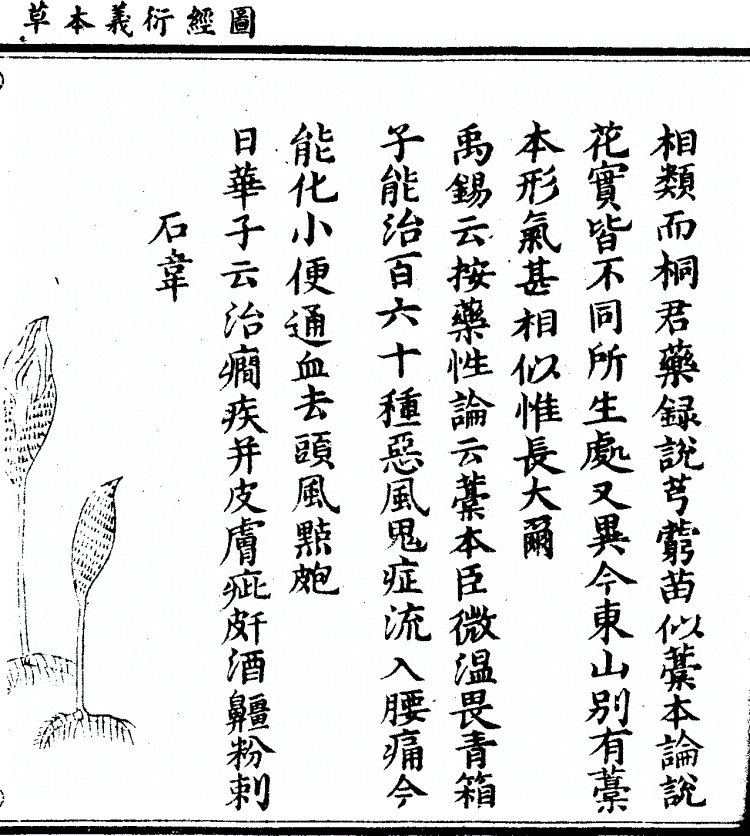 圖經衍義本草
相類而桐君藥録說芎藭苗似藁本論說
花實皆不同所生處又異今東山别有藁
本形氣甚相似惟長大爾
禹錫云按藥性論云藁本臣微溫畏青箱
子能治百六十種惡風鬼疰流入腰痛今
能化小便通血去頭風䵟皰
日華子云治癎疾并皮膚疵皯酒齇粉刺
石韋